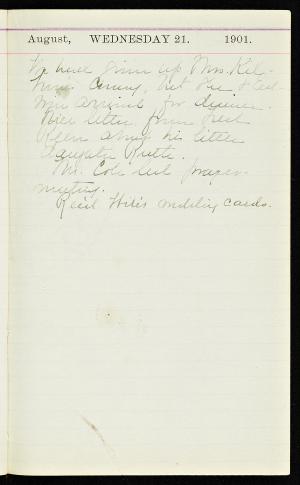 August, WEDNESDAY 21. 1901.
We have given up Mrs. Kil-
coming, but &
arrived for dinner.
Nice letter from Fred
about his little
daughter Ruth.
Mr. Cole led prayer-
meeting.
Rec'd wedding cards.